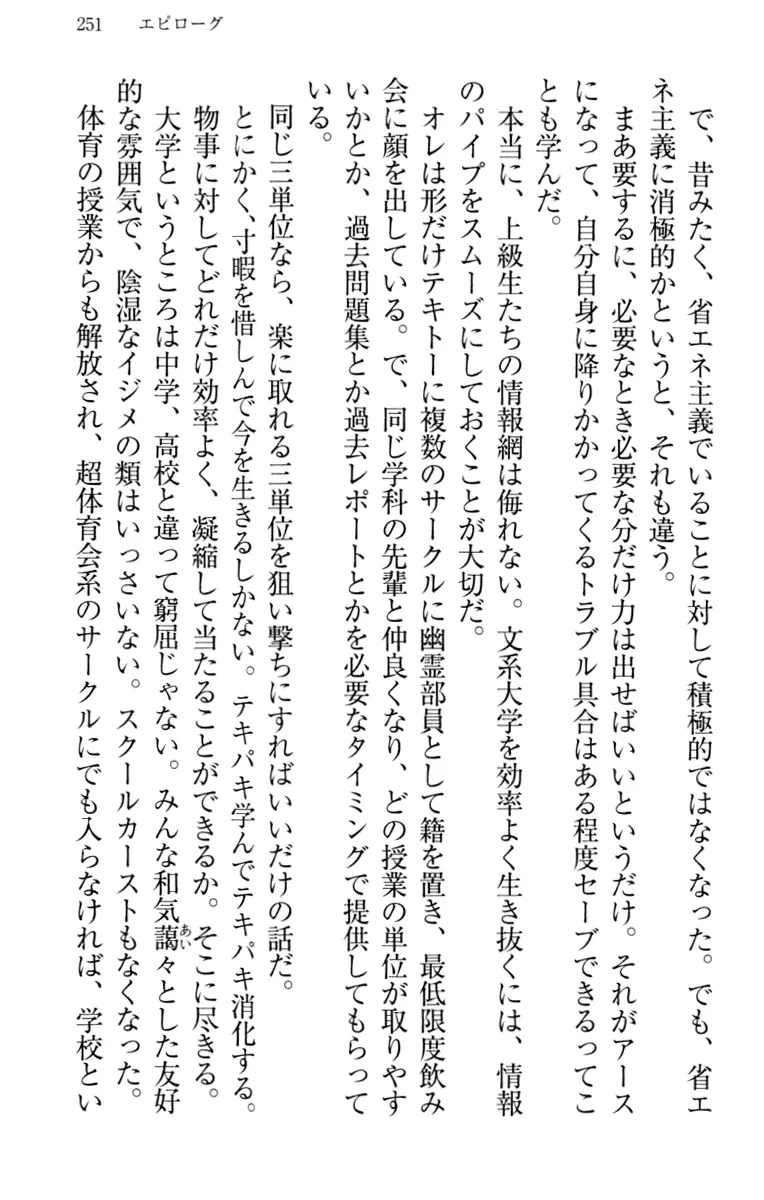 251　エピローグ
　で、昔みたく、省エネ主義でいることに対して積極的ではなくなった。でも、省エ
ネ主義に消極的かというと、それも違う。
　まあ要するに、必要なとき必要な分だけ力は出せばいいというだけ。それがアース
になって、自分自身に降りかかってくるトラブル具合はある程度セーブできるってこ
とも学んだ。
　本当に、上級生たちの情報網は侮れない。文系大学を効率よく生き抜くには、情報
のパイプをスムーズにしておくことが大切だ。
　オレは形だけテキトーに複数のサークルに幽霊部員として籍を置き、最低限度飲み
会に顔を出している。で、同じ学科の先輩と仲良くなり、どの授業の単位が取りやす
いかとか、過去問題集とか過去レポートとかを必要なタイミングで提供してもらって
いる。
　同じ三単位なら、楽に取れる三単位を狙い撃ちにすればいいだけの話だ。
　とにかく、寸暇を惜しんで今を生きるしかない。テキパキ学んでテキパキ消化する。
　物事に対してどれだけ効率よく、凝縮して当たることができるか。そこに尽きる。
　大学というところは中学、高校と違って窮屈じゃない。みんな和気藹々とした友好
的な雰囲気で、陰湿なイジメの類はいっさいない。スクールカーストもなくなった。
　体育の授業からも解放され、超体育会系のサークルにでも入らなければ、学校とい
あい